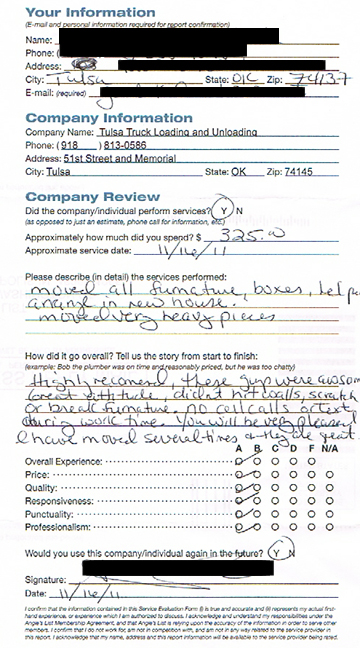 Your Information
(E-mail and personal information required for report confirmation)
Name:
Phone: (
Address:
City: Tulsa State: OK Zip: 74137
E-mail: (required)
Company Information
Company Name: Tulsa Truck Loading and Unloading
Phone: (918 ) 813-0586
Address: 51st Street and Memorial
City: Tulsa State: OK Zip: 74145
Company Review
Did the company/individual perform services? Y N
(as opposed to just an estimate, phone call for information, etc.)
Approximately how much did you spend? $ 325.00
Approximate service date: 11/16/11
Please describe (in detail) the services performed:
moved all furnature, boxes, help
arrange in new house.
moved very heavy pieces
How did it go overall? Tell us the story from start to finish:
(example: Bob the plumber was on time and reasonably priced, but he was too chatty)
Highly recomend, these guys were
Great attitude, didnt hit walls, scratch
or break furnature. no cell calls or text
during work time. You will be very pleased
I have moved several times & they are great.
A B C D F N/A
Overall Experience:
Price:
Quality:
Responsiveness:
Punctuality:
Professionalism:
Would you use this company/individual again in the future? Y N
Signature:
Date: 11/16/11
I confirm that the information contained in this Service Evaluation Form (i) is true and accurate and (ii) represents my actual first-
hand experience, or experience which I am authorized to discuss. I acknowledge and understand my responsibilities under the
Angie's List Membership Agreement, and that Angie's List is relying upon the accuracy of the information in order to serve other
members. I confirm that I do not work for, am not in competition with, and am not in any way related to the service provider in
this report. I acknowledge that my name, address and this report information will be available to the service provider being rated.